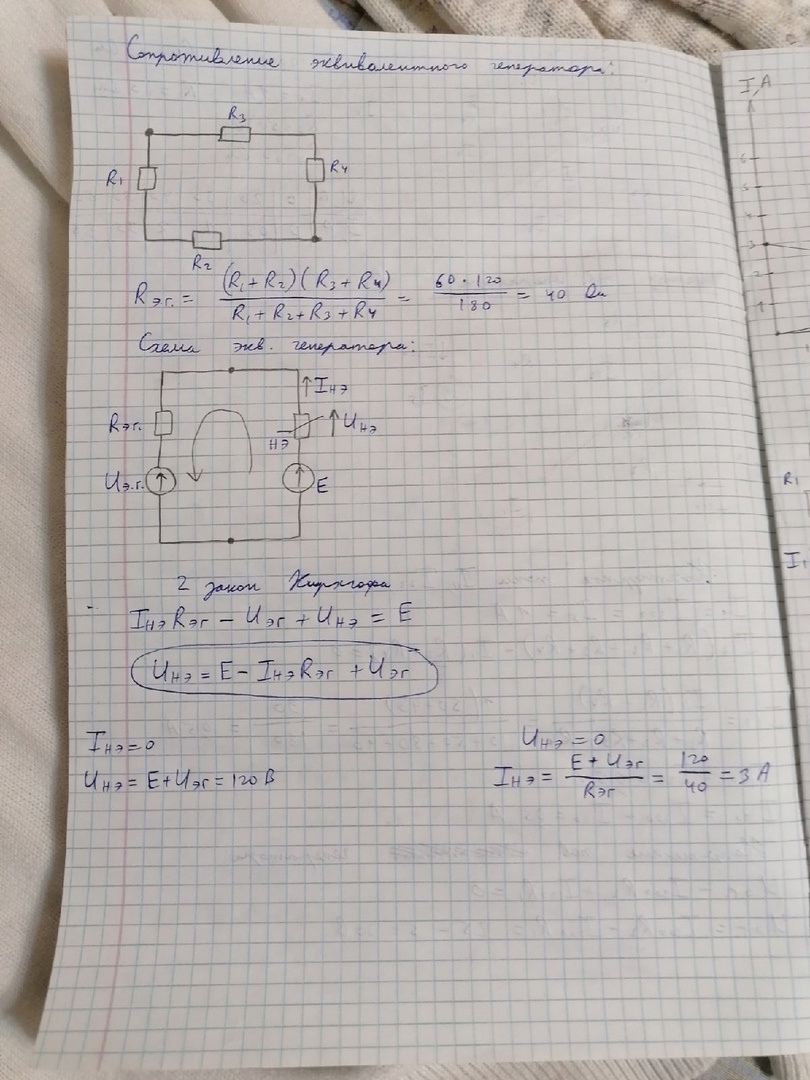 Сопротивление эквивалентного генератора:
R3
R1
R4
R2
Rэг. = (R1 + R2)(R3 + R4) / (R1 + R2 + R3 + R4) = 60 · 120 / 180 = 40 Ом
Схема экв. генератора:
Iнэ
Rэг.
нэ
Uнэ
Uэ.г.
E
2 закон Кирхгофа
IнэRэг − Uэг + Uнэ = E
Uнэ = E − IнэRэг + Uэг
Iнэ = 0
Uнэ = 0
Uнэ = E + Uэг = 120 В
Iнэ = (E + Uэг) / Rэг = 120 / 40 = 3 А
I, A
6
5
4
3
2
1
R1
I1